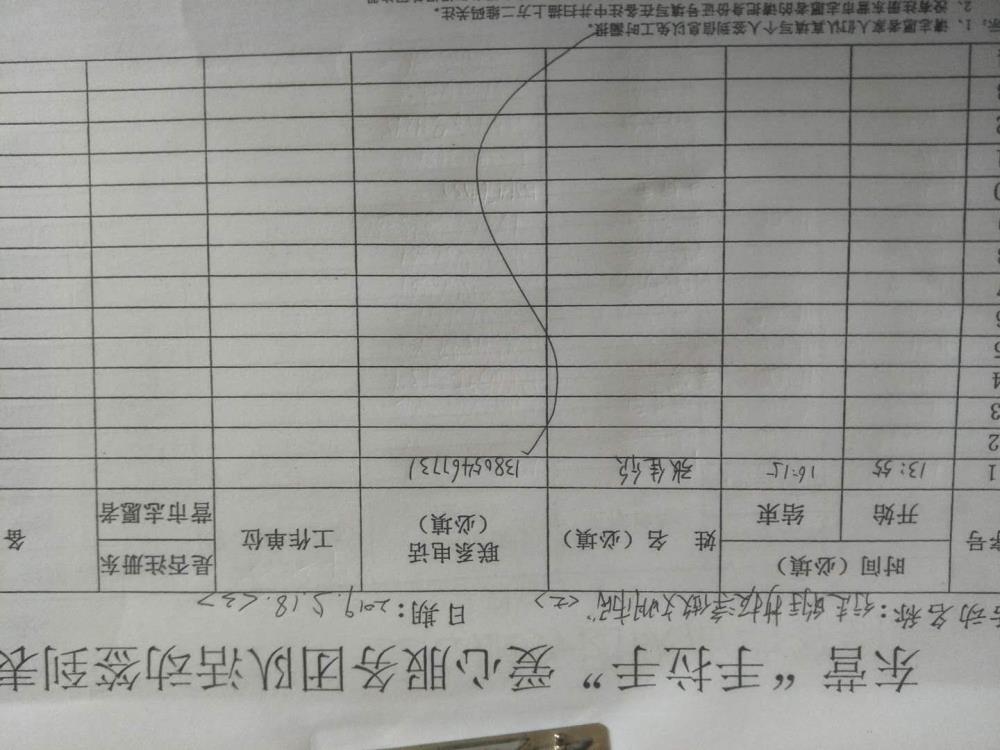 东营“手拉手”爱心服务团队活动签到表
动名称： 日期：2019.5.18.<3>
序号 时间（必填） 姓 名（必填） 联系电话（必填） 工作单位 是否注册东营市志愿者 备
开始 结束
1 13:55 16:15 张佳欣 13805461731
2
3
4
5
6
7
8
9
10
1、请志愿者家人们认真填写个人签到信息以免工时漏报。
2、没有注册东营市志愿者的请把身份证号填写在备注中并扫描上方二维码关注